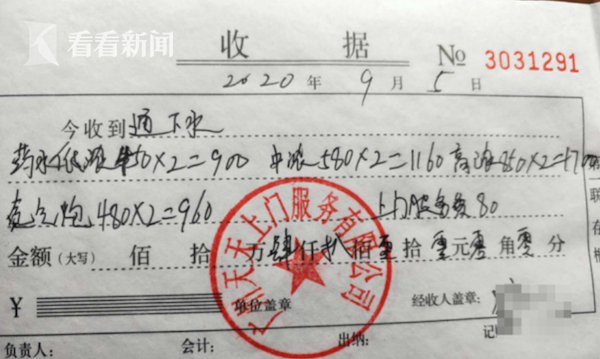 看看新闻
收 据 № 3031291
2020 年 9 月 5 日
今收到 通下水
药水低浓450×2=900 中浓580×2=1160 高浓850×2=1700
气炮480×2=960 上门服务费80
金额(大写) 佰 拾 万肆仟捌佰零拾零元零角零分
天天上门服务有限公司
¥ 单位盖章 经收人盖章:
负责人: 会计: 出纳: 记
联
在